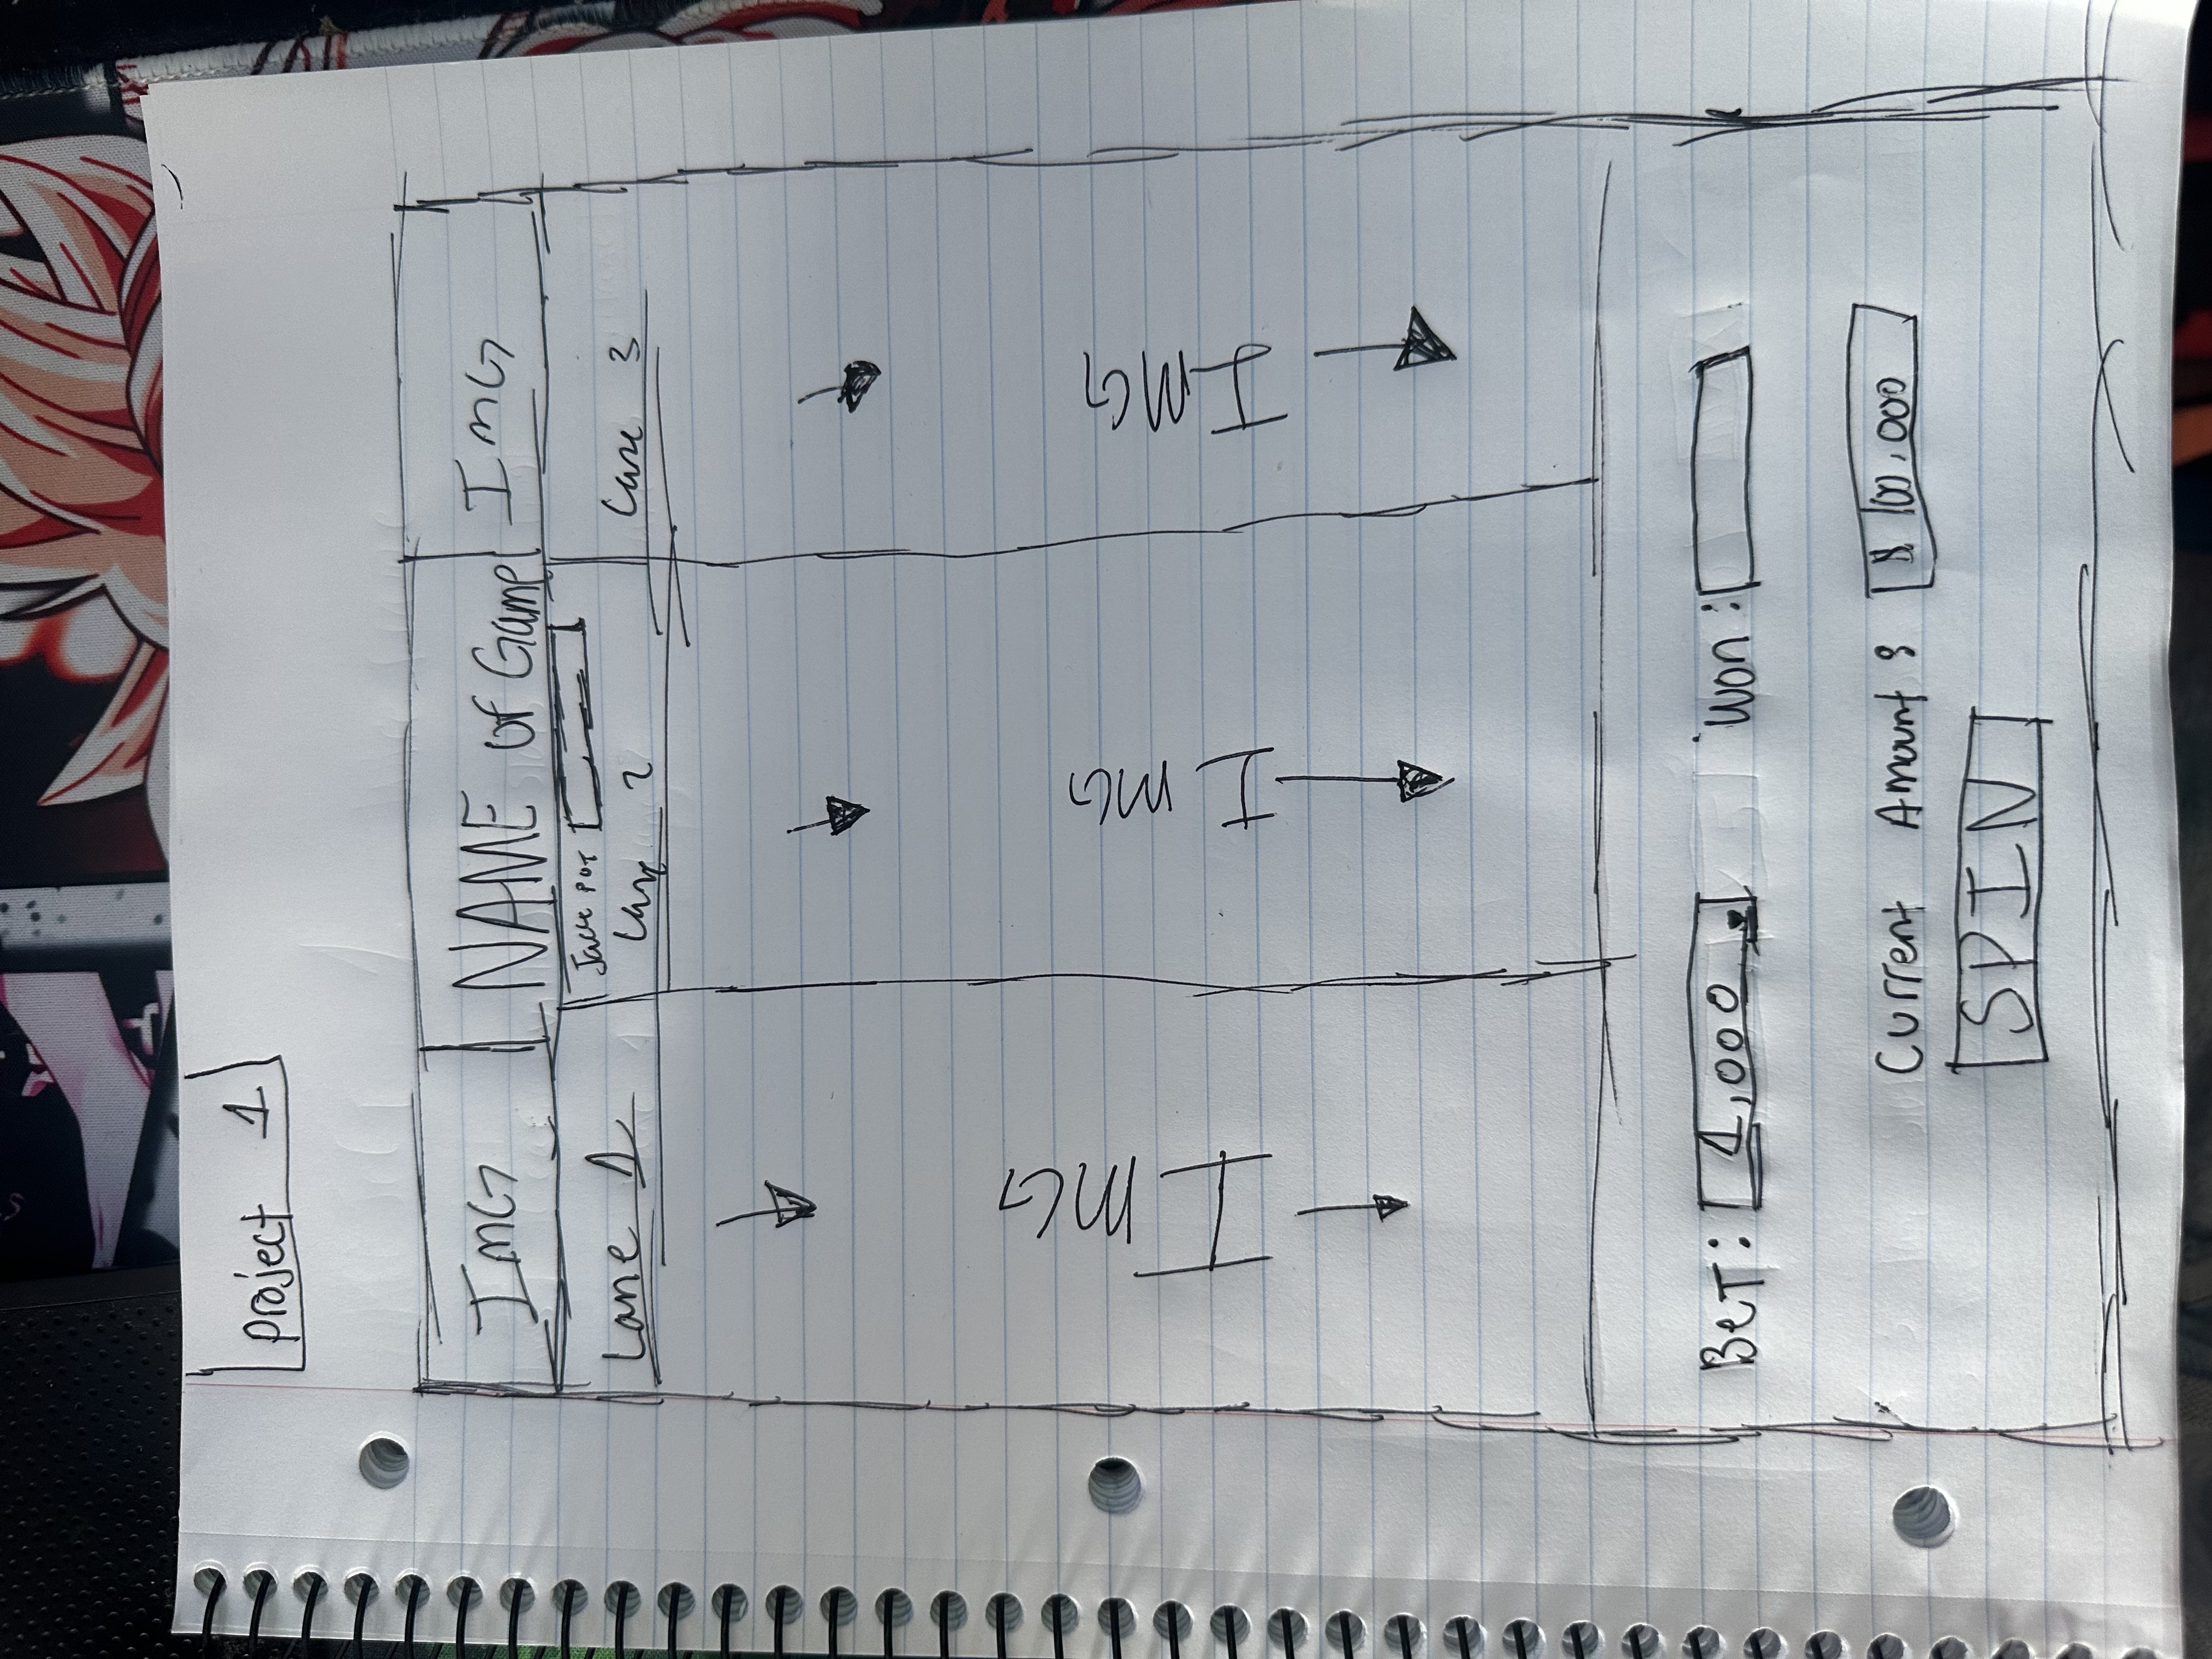 Project 1
IMG NAME of Game IMG
Jack POT
Lane 1 Lane 2 Lane 3
IMG IMG IMG
BeT: 1,000 Won:
Current Amount : $ 100,000
SPIN